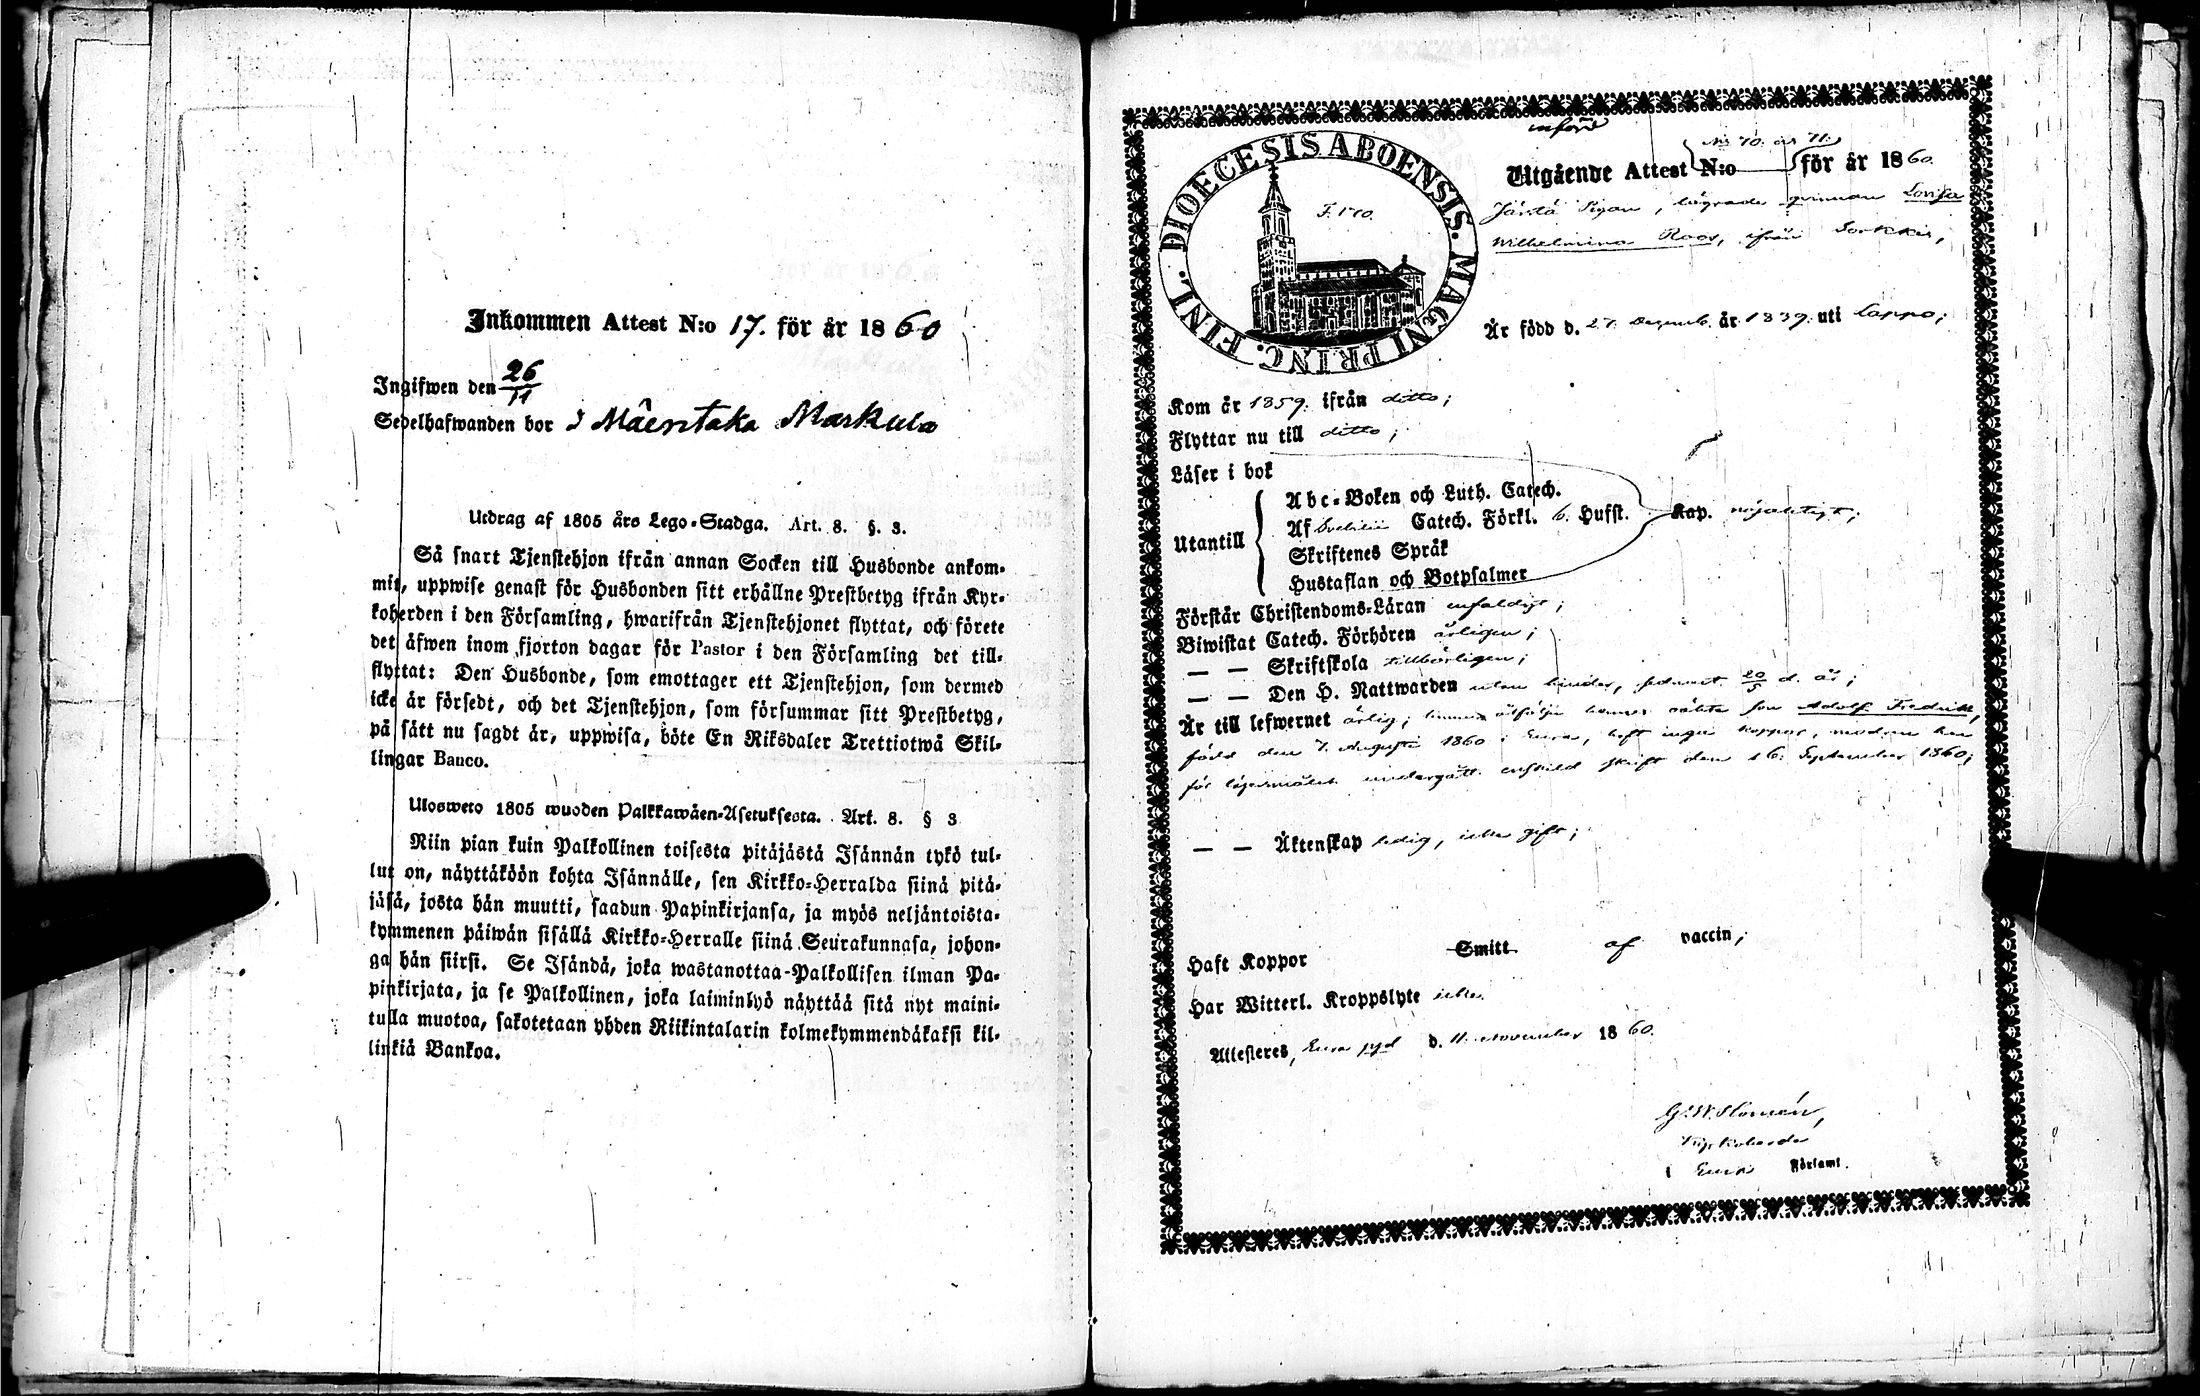 Inkommen Attest N:o 17. för år 1860
Ingifwen den 26/11
Sedelhafwanden bor i Mäentaka Markula
Utdrag af 1805 års Lego-Stadga. Art. 8. §. 3.
Så snart Tjenstehjon ifrån annan Socken till Husbonde ankom-
mit, uppwise genast för Husbonden sitt erhållne Prestbetyg ifrån Kyr-
koherden i den Församling, hwarifrån Tjenstehjonet flyttat, och förete
det äfwen inom fjorton dagar för Pastor i den Församling det till-
flyttat: Den Husbonde, som emottager ett Tjenstehjon, som dermed
icke är försedt, och det Tjenstehjon, som försummar sitt Prestbetyg,
på sätt nu sagdt är, uppwisa, böte En Riksdaler Trettiotwå Skil-
lingar Banco.
Ulosweto 1805 wuoden Palkkawäen-Asetuksesta. Art. 8. § 3
Niin pian kuin Palkollinen toisesta pitäjästä Isännän tykö tul-
lut on, näyttäköön kohta Isännälle, sen Kirkko-Herralda siinä pitä-
jäsä, josta hän muutti, saadun Papinkirjansa, ja myös neljäntoista-
kymmenen päiwän sisällä Kirkko-Herralle siinä Seurakunnasa, johon-
ga hän siirsi. Se Isändä, joka wastanottaa Palkollisen ilman Pa-
pinkirjata, ja se Palkollinen, joka laiminlyö näyttää sitä nyt maini-
tulla muotoa, sakotetaan yhden Riikintalarin kolmekymmendäkaksi kil-
linkiä Bankoa.
DIOECESIS ABOENSIS. MAGNI PRINC. FINL.
F. 170.
införd
No 70. och 71.
Utgående Attest N:o för år 1860.
Pigan, lägrade qvinnan Lovisa
Wilhelmina Roos, ifrån Sorkkis,
Är född d. 27. Decemb. år 1839. uti Lappo;
Kom år 1859. ifrån ditto;
Flyttar nu till ditto;
Läser i bok
Utantill
Abc-Boken och Luth. Catech.
Af Svebilii Catech. Förkl. 6. Hufst. Kap. nöjaktigt;
Skriftenes Språk
Hustaflan och Botpsalmer
Förstår Christendoms-Läran enfaldigt;
Biwistat Catech. Förhören årligen;
— — Skriftskola tillbörligen;
— — Den H. Nattwarden utan hinder, senast 20/5 d. år;
Är till lefwernet ärlig; hennes oäkta son Adolf Fredrik,
född den 7. Augusti 1860 i Eura, haft inga koppor, modren har
för lägersmålet undergått enskild skrift den 16. September 1860;
— — Äktenskap ledig, icke gift;
Haft Koppor Smitt af vaccin;
Har Witterl. Kroppslyte icke.
Attesteras, Eura pgd d. 11. November 1860.
G. W. Homén,
Kyrkoherde
i Eura Församl.